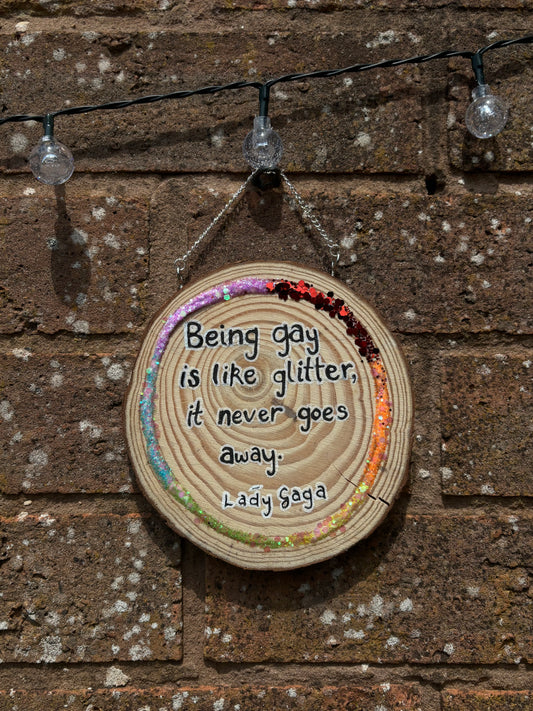 Being gay
is like glitter,
it never goes
away.
Lady Gaga